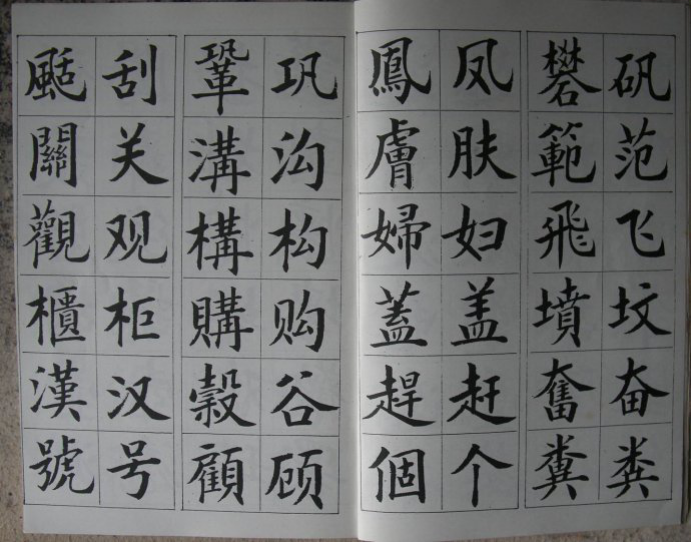 矾范飞坟奋粪
礬範飛墳奮糞
凤肤妇盖赶个
鳳膚婦蓋趕個
巩沟构购谷顾
鞏溝構購穀顧
刮关观柜汉号
颳關觀櫃漢號